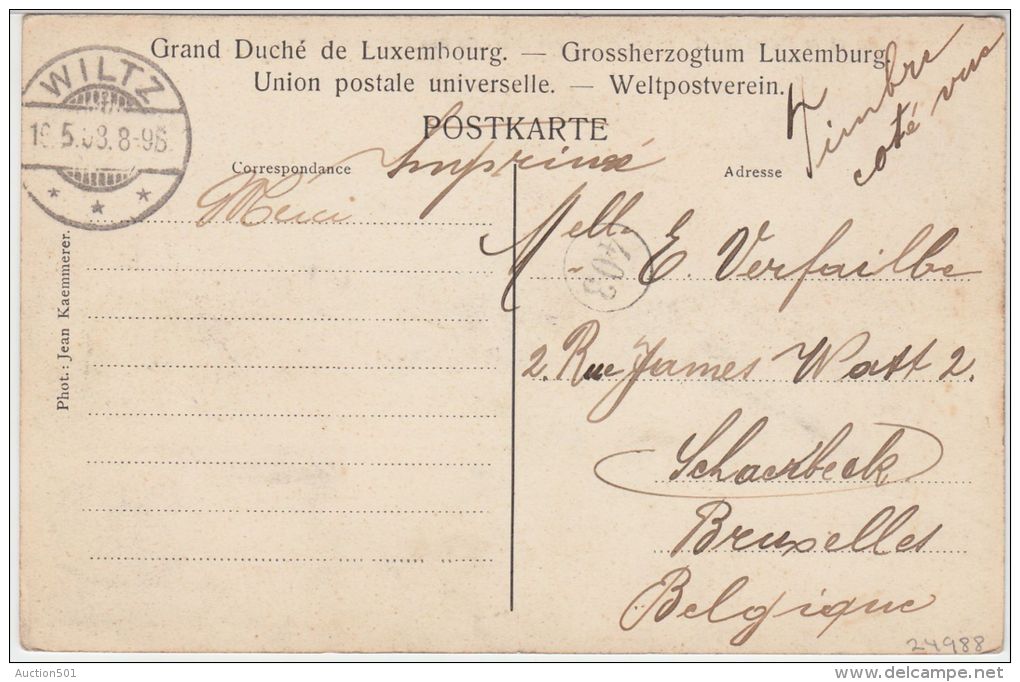 Grand Duché de Luxembourg. — Grossherzogtum Luxemburg.
Union postale universelle. — Weltpostverein.
Timbre
coté vue
WILTZ
5.08.8-9B.
POSTKARTE
Imprimé
Correspondance
Adresse
Merci
Melle E. Verfaillie
403
2. Rue James Watt 2.
Schaerbeek
Bruxelles
Belgique
Phot.: Jean Kaemmerer.
24988
Auction501
delcampe.net